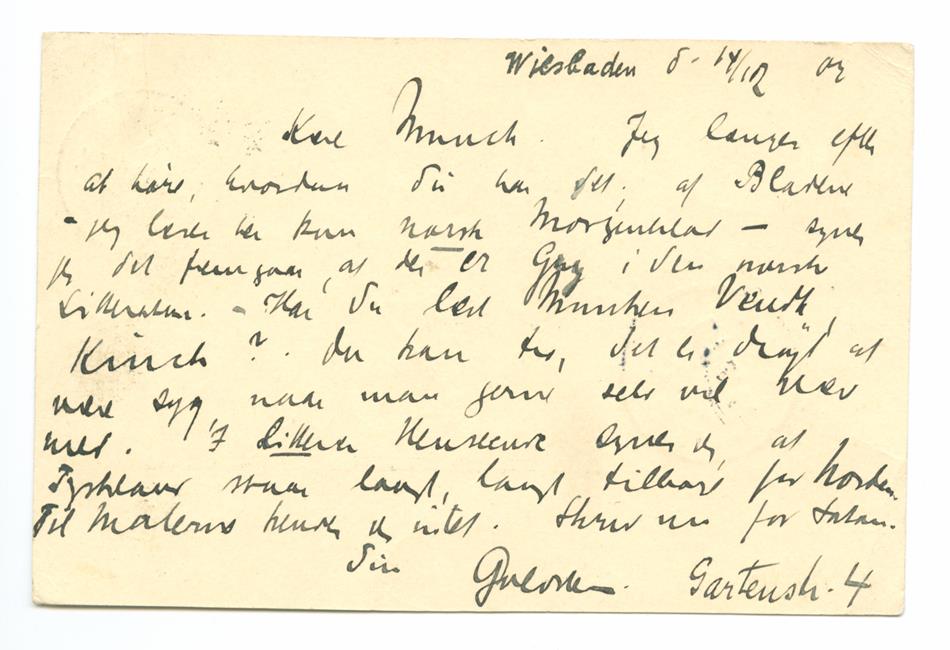 Wiesbaden d. 14/12 02
Kære Munch. Jeg længes efter
at høre, hvordan du har det, af Bladene
- jeg læser her kun norsk Morgenblad - synes
jeg det fremgaar, at der er Gry i den norske
Litteratur. - Har du læst Munken Vendt,
Kinck? Du kan tro, det er drøjt at
være syg, naar man gerne selv vil være
med. I Litterær Henseende synes jeg, at
Tyskland staar langt, langt tilbage for Norden.
Til Maleriet kender jeg intet. Skriv nu for Satan.
Din
Gartenstr. 4